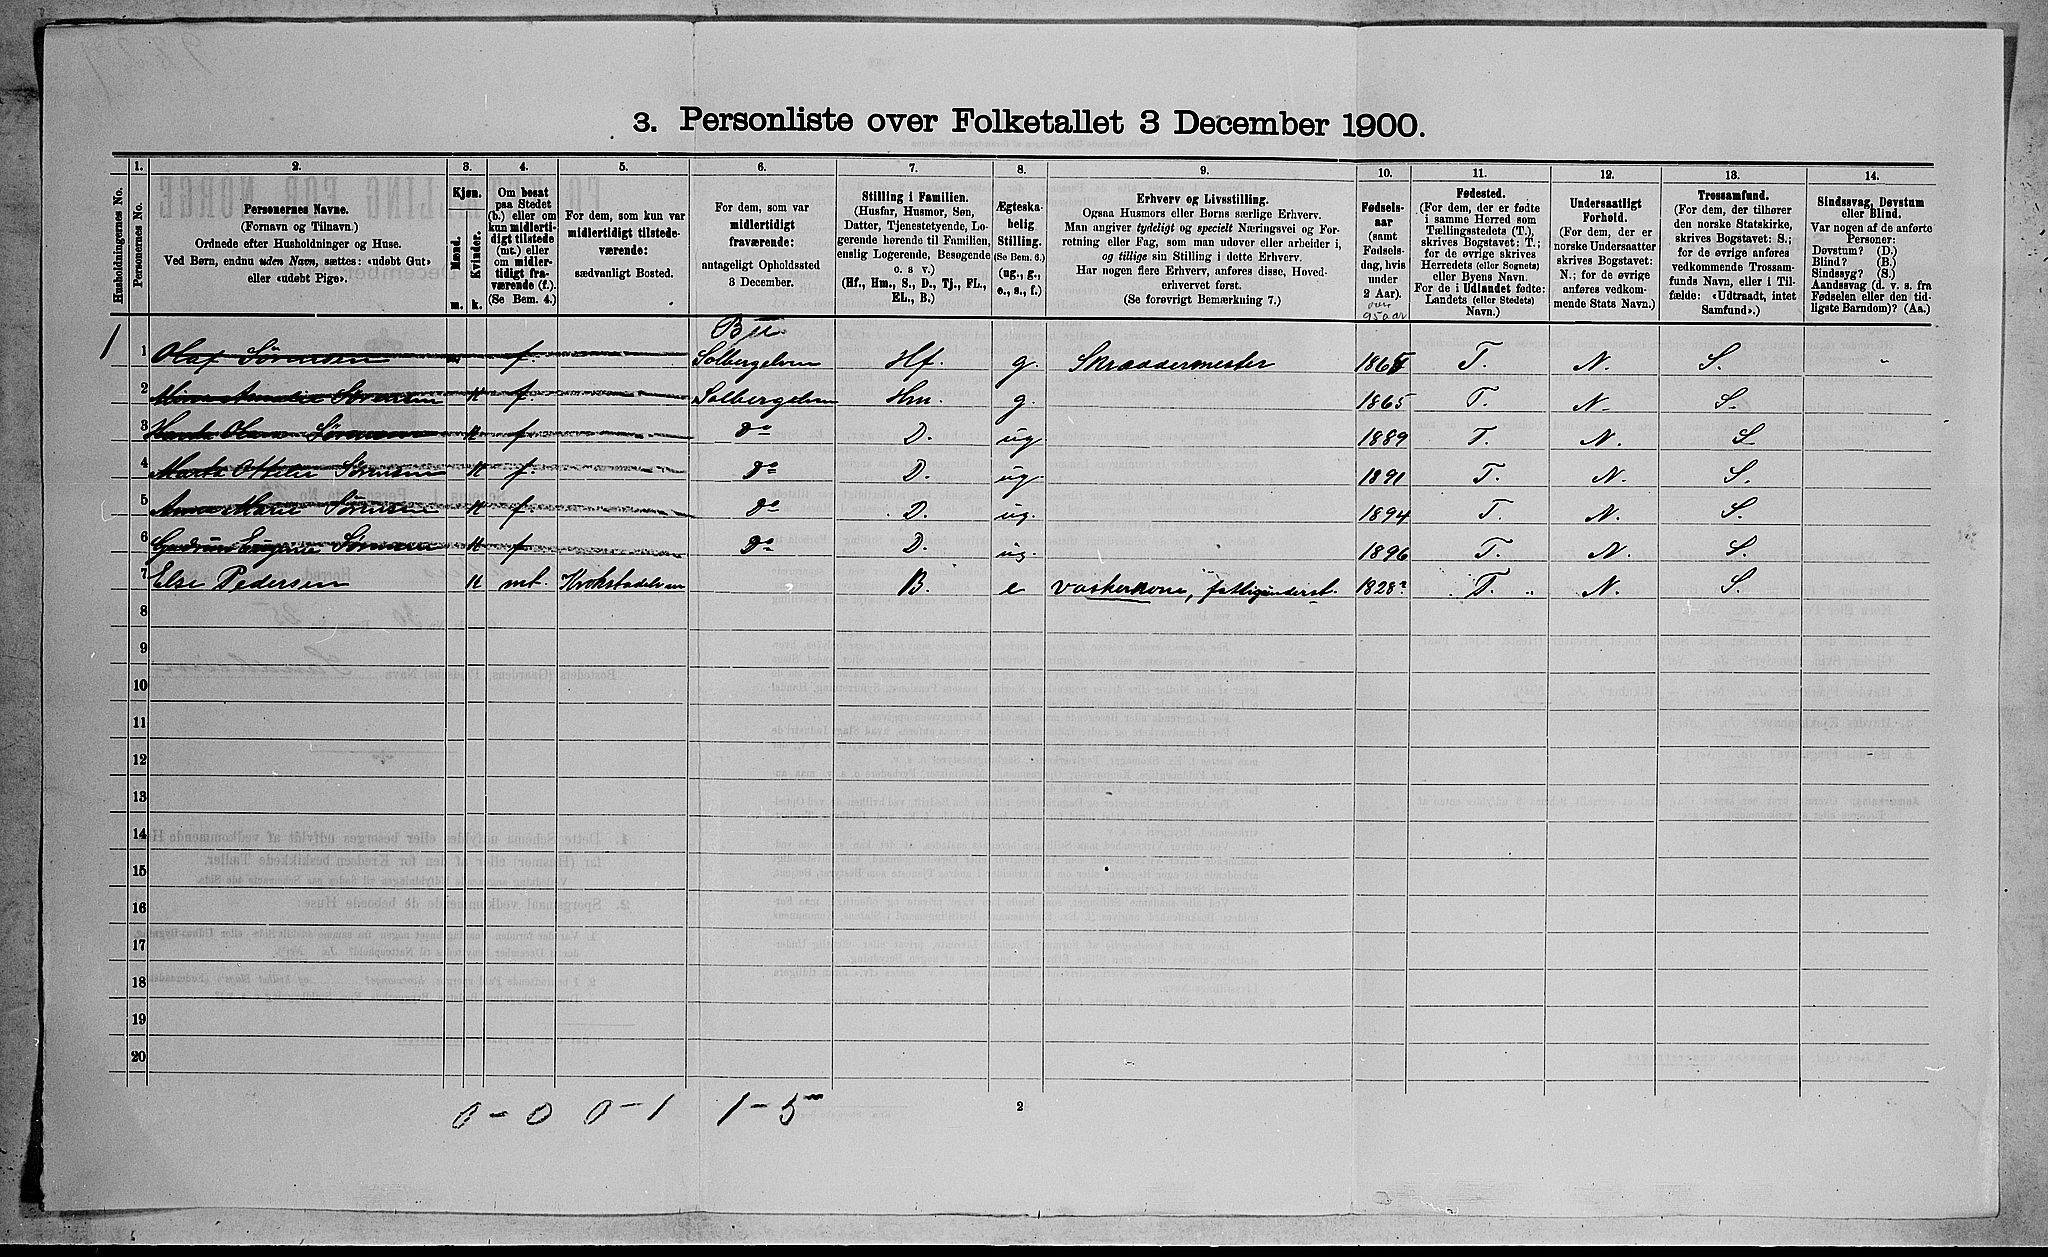 3. Personliste over Folketallet 3 December 1900.
Husholdningernes No.
1.
Personernes No.
2.
Personernes Navne.
(Fornavn og Tilnavn.)
Ordnede efter Husholdninger og Huse.
Ved Børn, endnu uden Navn, sættes: «udøbt Gut»
eller «udøbt Pige».
3.
Kjøn.
Mænd.
Kvinder.
m.
k.
4.
Om bosat
paa Stedet
(b.) eller om
kun midlerti-
digt tilstede
(mt.) eller
om midler-
tidigt fra-
værende (f.).
(Se Bem. 4.)
5.
For dem, som kun var
midlertidigt tilstede-
værende:
sædvanligt Bosted.
6.
For dem, som var
midlertidigt
fraværende:
antageligt Opholdssted
3 December.
7.
Stilling i Familien.
(Husfar, Husmor, Søn,
Datter, Tjenestetyende, Lo-
gerende hørende til Familien,
enslig Logerende, Besøgende
o. s. v.)
(Hf., Hm., S., D., Tj., FL.,
EL., B.)
8.
Ægteska-
belig
Stilling.
(Se Bem. 6.)
(ug., g.,
e., s., f.)
9.
Erhverv og Livsstilling.
Ogsaa Husmors eller Børns særlige Erhverv.
Man angiver tydeligt og specielt Næringsvei og For-
retning eller Fag, som man udøver eller arbeider i,
og tillige sin Stilling i dette Erhverv.
Har nogen flere Erhverv, anføres disse, Hoved-
erhvervet først.
(Se forøvrigt Bemærkning 7.)
10.
Fødsels-
aar
(samt
Fødsels-
dag, hvis
under
2 Aar).
over
95 aar
11.
Fødested.
(For dem, der er fødte
i samme Herred som
Tællingsstedets (T.),
skrives Bogstavet: T.;
for de øvrige skrives
Herredets (eller Sognets)
eller Byens Navn.
For de i Udlandet fødte:
Landets (eller Stedets)
Navn.)
12.
Undersaatligt
Forhold.
(For dem, der er
norske Undersaatter
skrives Bogstavet:
N.; for de øvrige
anføres vedkom-
mende Stats Navn.)
13.
Trossamfund.
(For dem, der tilhører
den norske Statskirke,
skrives Bogstavet: S.;
for de øvrige anføres
vedkommende Trossam-
funds Navn, eller i Til-
fælde: «Udtraadt, intet
Samfund».)
14.
Sindssvag, Døvstum
eller Blind.
Var nogen af de anførte
Personer:
Døvstum? (D.)
Blind? (B.)
Sindssyg? (S.)
Aandssvag (d. v. s. fra
Fødselen eller den tid-
ligste Barndom)? (Aa.)
1
1 Olaf Sørensen m f. Solbergelven Hf. g. Skræddermester 1865 T. N. S.
2 Amalia Sørensen k f. Solbergelven Hm. g. 1865 T. N. S.
3 Olava Sørensen k f do D. ug 1889 T. N. S
4 Marta Otteler Sørensen k f. do D. ug. 1891 T. N. S.
5 Anna Marie Sørensen k f. do D. ug. 1894 T. N. S.
6 Gudrun Eugenie Sørensen k f do D. ug. 1896 T. N. S.
7 Else Pedersen k mt. Krokstadelven B. e vaskerkone, fattigunderst. 1828? T. N. S.
8
9
10
11
12
13
14
15
16
17
18
19
20
0 - 0 0 - 1 1 - 5
2